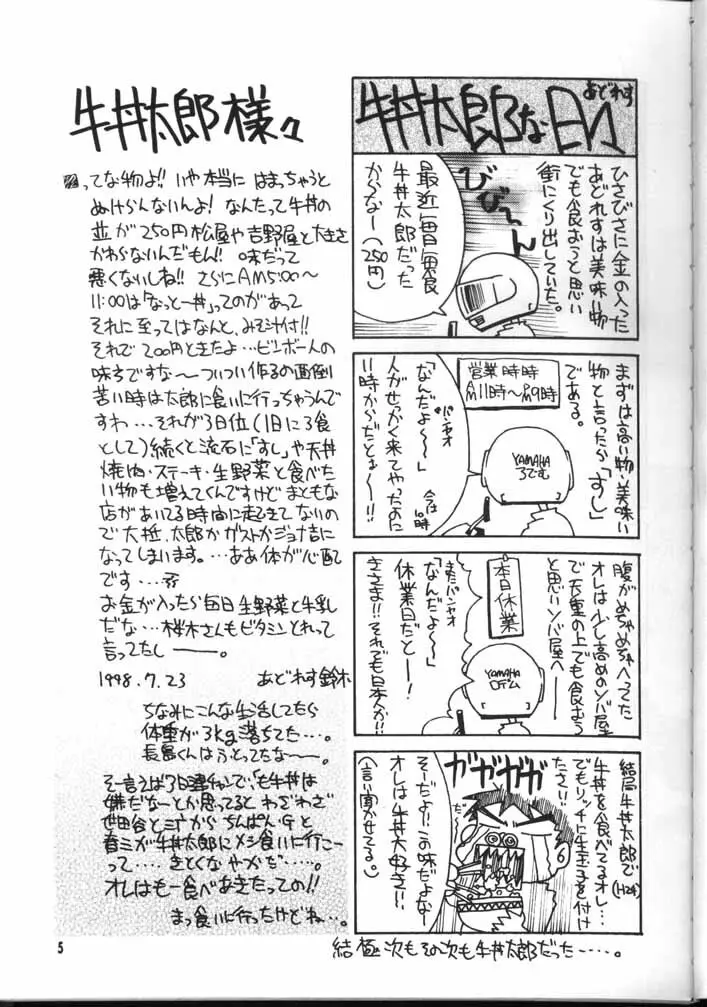 牛丼太郎な日々
あどれす
ひさびさに金の入った
あどれすは美味い物
でも食おうと思い
街にくり出していた。
びびーん
最近毎日毎食
牛丼太郎だった
からなー(250円)
まずは高い物・美味い
物と言ったら「すし」
である。
営業時時
AM11時〜PM9時
YAMAHA
ろでむ
「なんだよ〜〜」
人がせっかく来てやったのに
11時からだとぉ〜!!
今は10時
腹がめちゃめちゃへってた
オレは少し高めのソバ屋
で天重の上でも食おう
と思いソバ屋へ──
本日休業
YAMAHA
ロデム
「なんだよ〜〜」
休業日だと──!
きさま!!それでも日本人か!!
結局牛丼太郎で
牛丼を食べてるオレ…(H24)
でもリッチに生玉子を付け
たさ!!
ガガガガ
そーだよ!!この味だよな〜
オレは牛丼大好き!!
(言い聞かせてる。)
結極次もその次も牛丼太郎だった……。
牛丼太郎様々
ってな物よ!! いや本当に はまっちゃうと
ぬけらんないんよ! なんたって牛丼の
並が250円松屋や吉野屋と大きさ
かわらないんだもん!! 味だって
悪くないしね!! さらにAM5:00〜
11:00は「なっとー丼」ってのがあって
それに至ってはなんと、みそ汁付!!
それで200円ときたよ…ビンボー人の
味方ですな〜ついつい作るの面倒
苦い時は太郎に食いに行っちゃうんで
すわ…それが3日位(1日に3食
として)続くと流石に「すし」や天丼
焼肉・ステーキ・生野菜と食べた
い物も増えてくんですけどまともな
店があいてる時間に起きてないの
で大抵、太郎かガストかジョナ吉に
なってしまいます。…ああ体が心配
です…
お金が入ったら毎日生野菜と牛乳
だな…桜木さんもビタミンとれって
言ってたし───。
1998.7.23 あどれす鈴木
ちなみにこんな生活してたら
体重が3kg落ちてた…。
長島くんはふとってたな〜〜。
そー言うば3日連チャンで、も牛丼は
嫌だなーとか思ってると わざわざ
世田谷と三丁から ちんぱん・Gと
春ミが牛丼太郎にメシ食いに行こー
って……きとくなやからだ……。
オレはもー食べあきたっての!!
まっ食いに行ったけどね…。
5